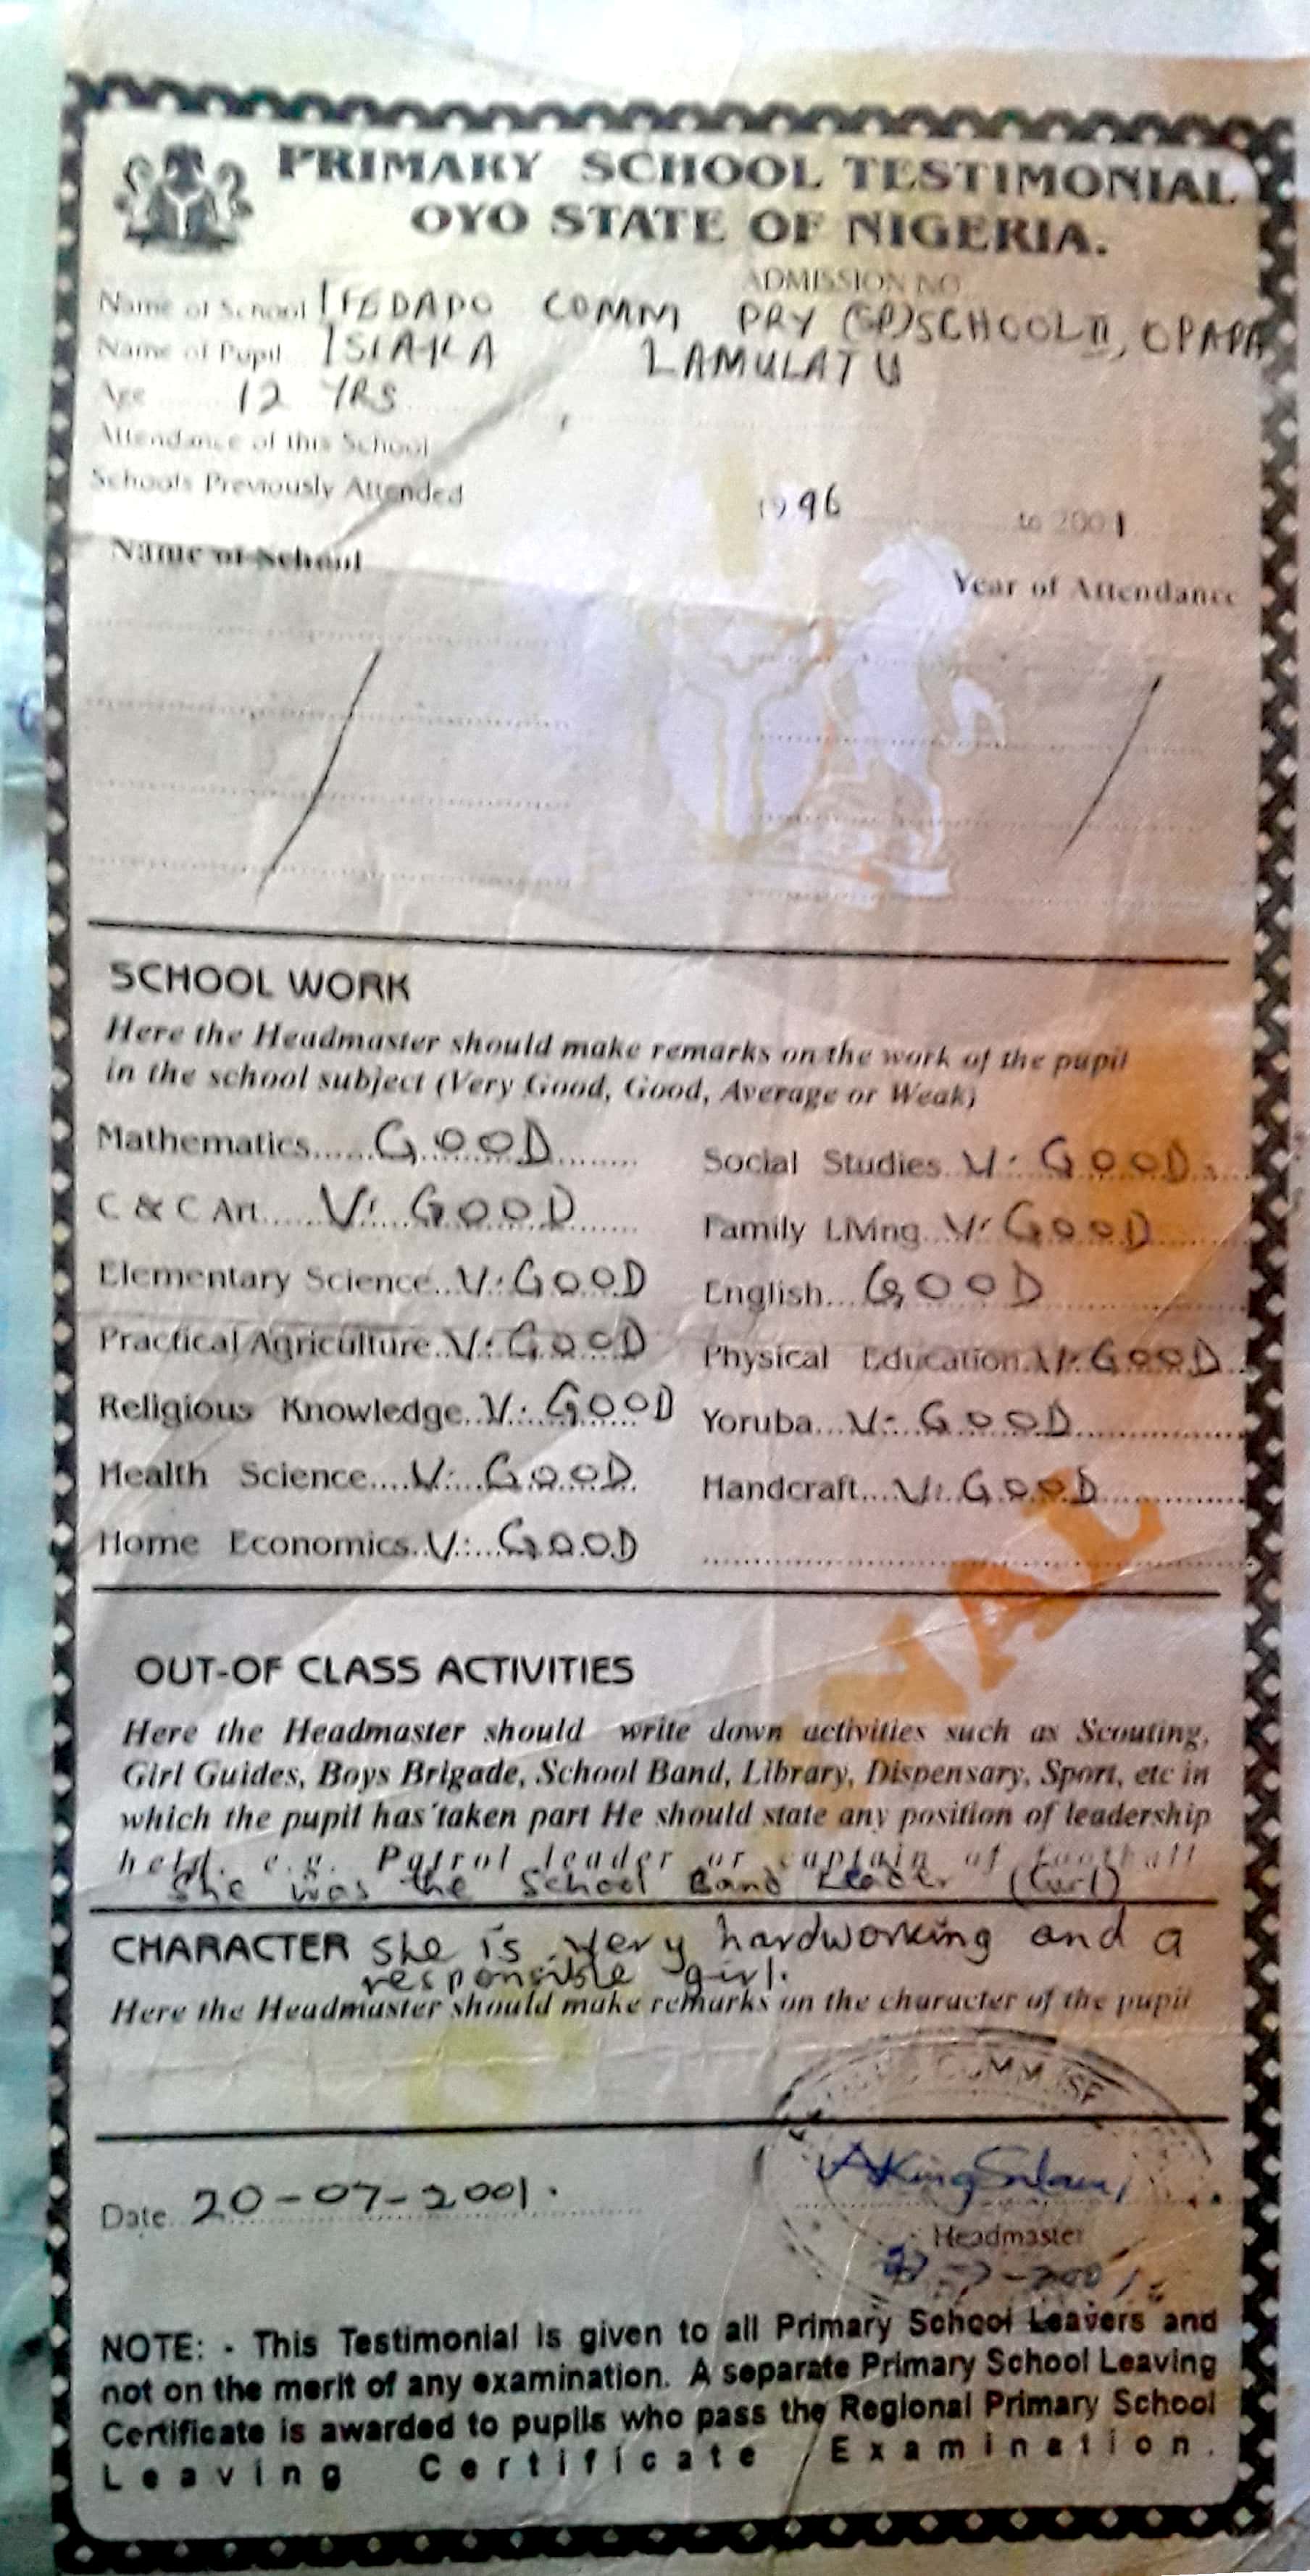 PRIMARY SCHOOL TESTIMONIAL
OYO STATE OF NIGERIA.
ADMISSION NO
Name of School IFEDAPO COMM PRY (SP)SCHOOL II, OPAPA
Name of Pupil ISIAKA LAMULATU
Age 12 YRS
Attendance of this School
Schools Previously Attended
1996 to 2001
Name of School Year of Attendance
SCHOOL WORK
Here the Headmaster should make remarks on the work of the pupil
in the school subject (Very Good, Good, Average or Weak)
Mathematics......GOOD........ Social Studies V. GOOD
C & C Art......V. GOOD...... Family Living...V. GOOD
Elementary Science..V. GOOD English...GOOD
Practical Agriculture..V. GOOD Physical Education.V. GOOD
Religious Knowledge..V. GOOD Yoruba...V. GOOD
Health Science....V. GOOD Handcraft....V. GOOD
Home Economics..V. GOOD
OUT-OF CLASS ACTIVITIES
Here the Headmaster should write down activities such as Scouting,
Girl Guides, Boys Brigade, School Band, Library, Dispensary, Sport, etc in
which the pupil has taken part He should state any position of leadership
held. e.g. Patrol leader or captain of football
She was the School Band Leader (Girl)
CHARACTER She is very hardworking and a
responsible girl.
Here the Headmaster should make remarks on the character of the pupil
COMM.
Date 20-07-2001.
Headmaster
NOTE: - This Testimonial is given to all Primary School Leavers and
not on the merit of any examination. A separate Primary School Leaving
Certificate is awarded to pupils who pass the Regional Primary School
Leaving Certificate Examination.